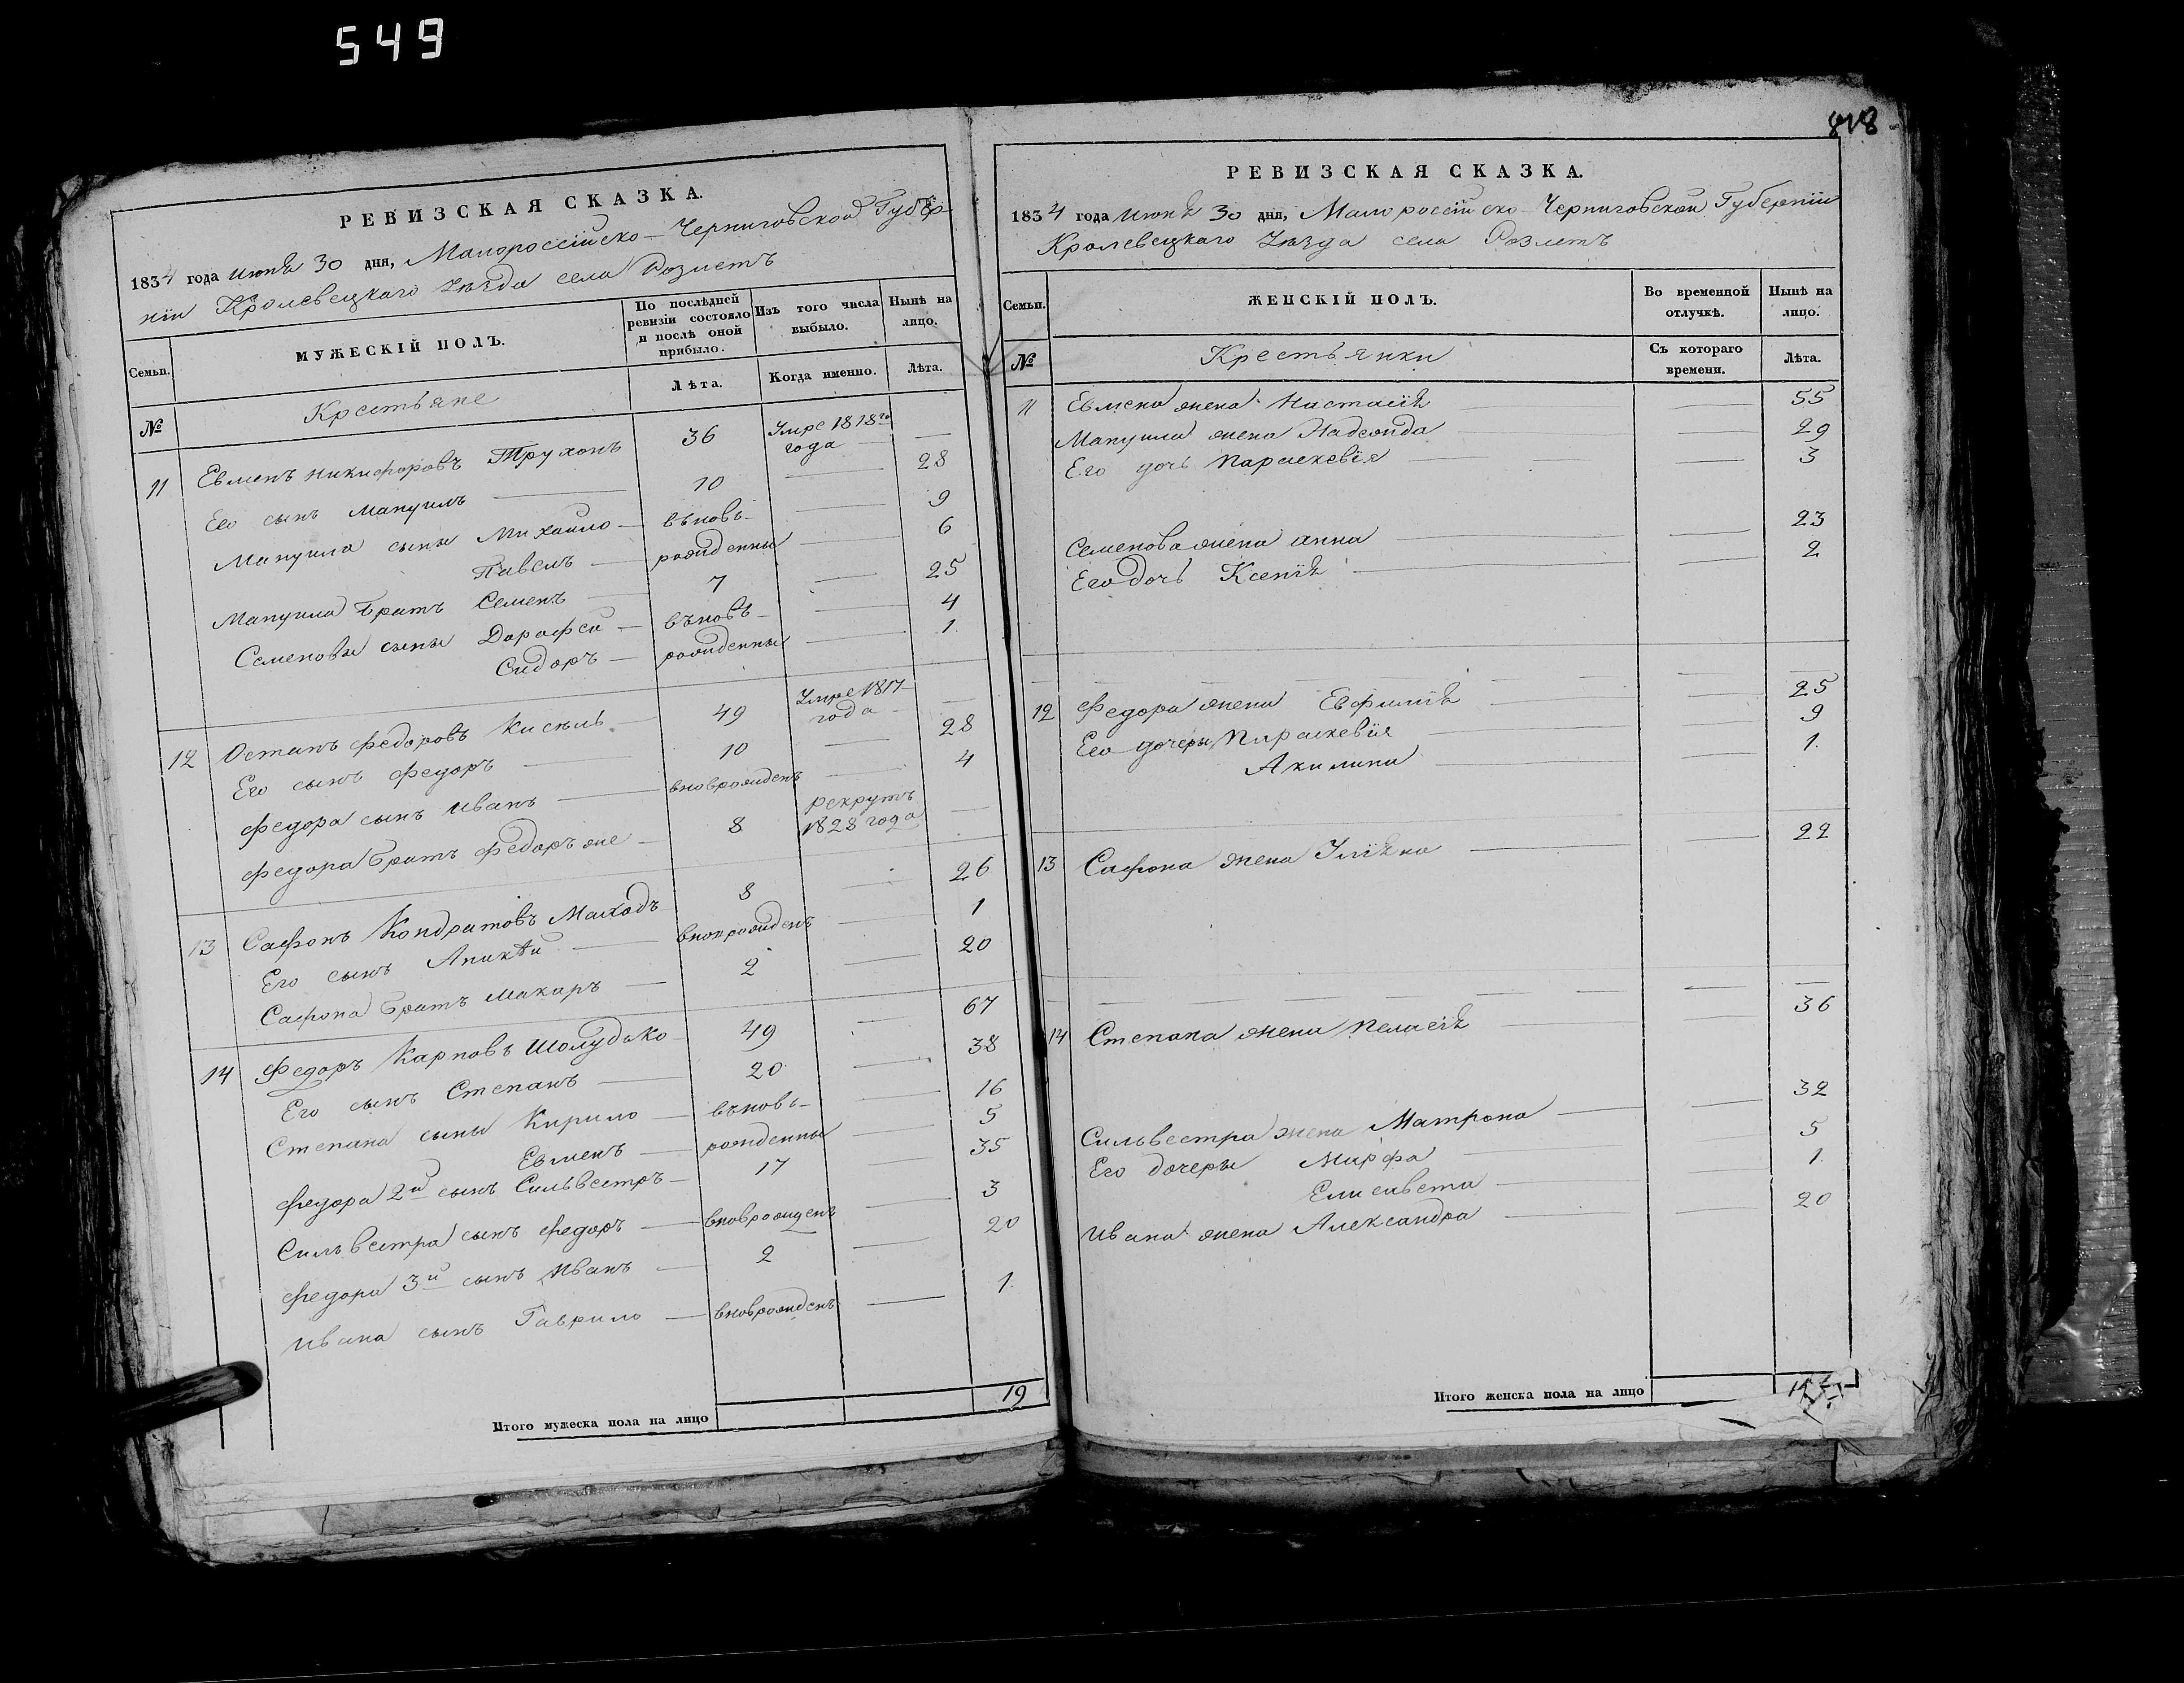 549
818
РЕВИЗСКАЯ СКАЗКА.
1834 года июня 30 дня, Малороссійско-Черниговской Губер-
ніи Кролевецкаго Уезда села Розлетъ
Семьи.
МУЖЕСКІЙ ПОЛЪ.
По послѣдней ревизіи состояло и послѣ оной прибыло.
Изъ того числа выбыло.
Нынѣ на лицо.
№
Крестьяне
Лѣта.
Когда именно.
Лѣта.
11 Евменъ Никифоровъ Трухонъ 36 Умре 1818го года —
Его сынъ Мануилъ — 10 — 28
Мануила сыны Михайло — въновь- — 9
Павелъ — рожденны — 6
Мануила братъ Семенъ — 7 — 25
Семеновы сыны Дорофей — въновь- — 4
Сидоръ — рожденны — 1.
12 Остапъ Федоровъ Кисель — 49 Умре 1817 года —
Его сынъ Федоръ — 10 — 28
Федора сынъ Иванъ — вноврожденъ — 4
Федора братъ Федоръ же — 8 рекрутъ 1828 года —
13 Сафонъ Кондратовъ Маходъ 8 — 26
Его сынъ Аникѣй — вноврожденъ — 1
Сафона братъ Макаръ — 2 — 20
14 Федоръ Карповъ Шолудько 49 — 67
Его сынъ Степанъ — 20 — 38
Степана сыны Кирило — въновь- — 16
Евменъ — рожденны — 5
Федора 2й сынъ Сильвестръ — 17 — 35
Сильвестра сынъ Федоръ — вноврожденъ — 3
Федора 3й сынъ Иванъ — 2 — 20
Ивана сынъ Гаврило — вноврожденъ — 1.
Итого мужеска пола на лицо 19
РЕВИЗСКАЯ СКАЗКА.
1834 года июня 30 дня, Малороссійско-Черниговской Губерніи
Кролевецкаго Уезда села Розлетъ
Семьи.
ЖЕНСКІЙ ПОЛЪ.
Во временной отлучкѣ.
Нынѣ на лицо.
№
Крестьянки
Съ котораго времени.
Лѣта.
11 Евмена жена Настасія — — 55
Мануила жена Надежда — — 29
Его дочь Параскевія — — 3
Семенова жена Анна — — 23
Его дочь Ксенія — — 2
12 Федора жена Евфимія — — 25
Его дочеры Параскевія — — 9
Акилина — — 1.
13 Сафона жена Уліяна — — 22
14 Степана жена Пелагія — — 36
Сильвестра жена Матрона — — 32
Его дочеры Марфа — — 5
Елисавета — — 1.
Ивана жена Александра — — 20
Итого женска пола на лицо